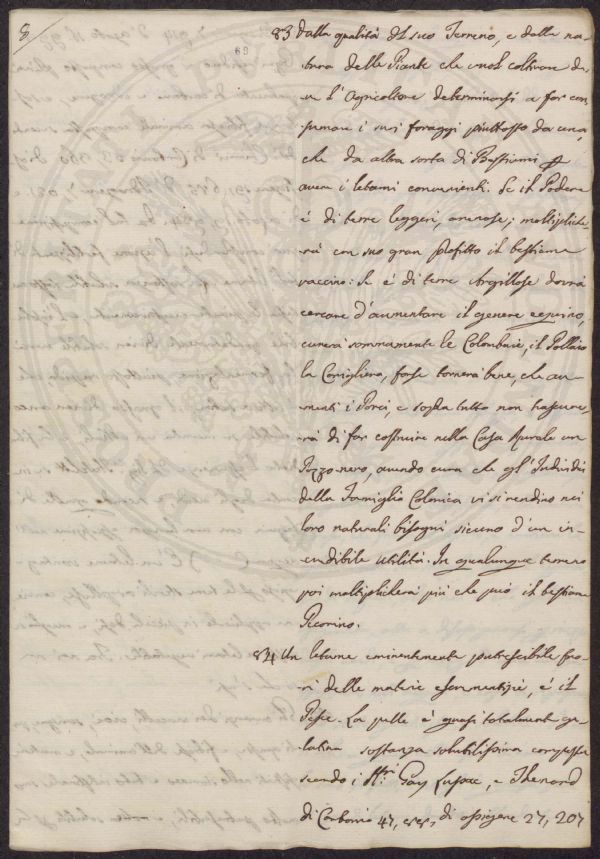 8
69
83 Dalla qualità del suo Terreno, e dalla na-
tura delle Piante che vuol coltivare de-
ve l'Agricoltore determinarsi a far con-
sumare i suoi foraggi piuttosto da una,
che da altra sorta di Bestiami
avere i letami convenienti. Se il Podere
é di terre leggeri, arenose; moltipliche-
rà con suo gran profitto il bestiame
vaccino: Se é di terre Argillose dovrà
cercare d'aumentare il genere equino,
curerà sommamente le Colombaie, il Pollaio
la Conigliera, forse tornerà bene, che au-
menti i Porci, e sopra tutto non trascure-
rà di far costruire nella Casa Rurale un
Pozzo nero, avendo cura che gl'Individui
della Famiglia Colonica vi si rendino nei
loro naturali bisogni sicuro d'un in-
credibile utilità. In qualunque terreno
poi moltiplicherà più che può il bestiame
Pecorino.
84 Un letame eminentemente putrescibile fuo-
ri delle materie escrementizie, é il
Pesce. La pelle é quasi totalmente ge-
latina sostanza solubilissima composta
secondo i Sig.ri Gay Lussac, e Thenard
di Carbonio 47, 881, di ossigene 27, 207